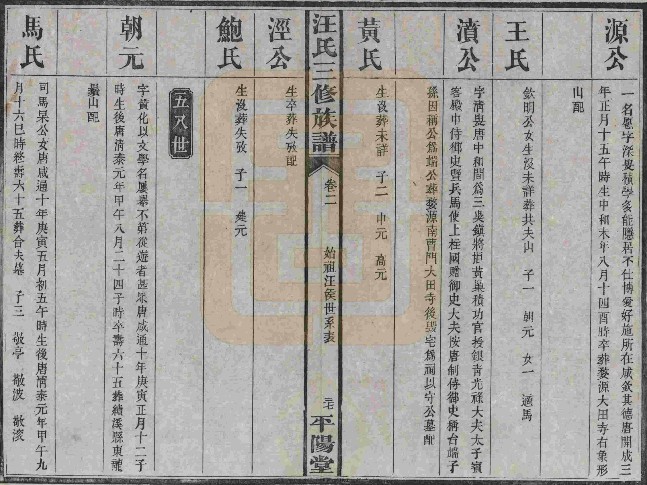 源公
一名愿字深奧積學多能隱居不仕博愛好施所在咸欽其德唐開成三
年正月十五午時生中和木年八月十四酉時卒葬婺源大田寺右象形
山配
王氏
欽明公女生沒未詳葬共夫山 子一 朝元 女一 適馬
濆公
字清與唐中和間爲三吳鎮將拒黃巢積功官授銀青光祿大夫太子賓
客殿中侍御史暨兵馬使上柱國贈御史大夫按唐制侍御史稱台端子
孫因稱公爲端公葬婺源南曹門大田寺後毀宅爲祠以守公墓配
黃氏
生沒葬未詳 子二 中元 高元
汪氏三修族譜
卷二
始祖汪侯世系表
平陽堂
涇公
生卒葬失攷配
鮑氏
生沒葬失攷 子一 美元
五八世
朝元
字黃化以文學名屢舉不第從遊者甚眾唐咸通十年庚寅正月十二子
時生後唐清泰元年甲午八月二十四子時卒壽六十五葬績溪縣東龍
叢山配
馬氏
司馬杲公女唐咸通十年庚寅五月初五午時生後唐清泰元年甲午九
月十六巳時終壽六十五葬合夫墓 子三 敬亭 敬波 敬淡